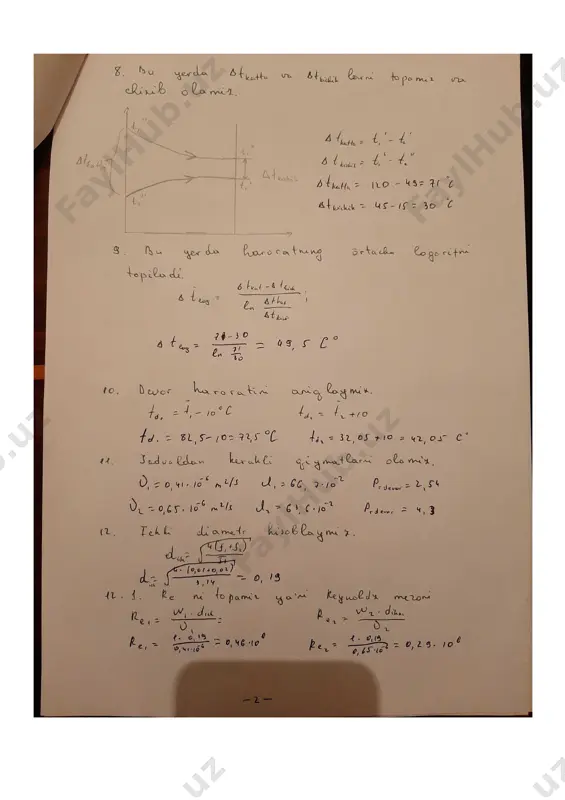 8. Bu yerda Δt katta va Δt kichik larni topamiz va
chizib olamiz.
t₁'
t₁"
t₂'
t₂"
Δt katta
Δt kichik
Δt katta = t₁' - t₂'
Δt kichik = t₁' - t₂"
Δt katta = 120 - 49 = 71 °C
Δt kichik = 45 - 15 = 30 °C
9. Bu yerda haroratning o'rtacha logaritmi
topiladi.
Δt log = (Δt kat - Δt kich) / (ln Δt kat / Δt kich) ;
Δt log = (71 - 30) / (ln 71/30) = 49,5 C°
10. Devor haroratini aniqlaymiz.
t d₁ = t₁ - 10 °C t d₂ = t₂ + 10
t d₁ = 82,5 - 10 = 72,5 °C t d₂ = 32,05 + 10 = 42,05 C°
11. Jadvaldan kerakli qiymatlarni olamiz.
υ₁ = 0,41·10⁻⁶ m²/s λ₁ = 66,7·10⁻² Pr devor = 2,54
υ₂ = 0,65·10⁻⁶ m²/s λ₂ = 61,6·10⁻² Pr devor = 4,3
12. Ichki diametr hisoblaymiz.
d ich = √(4(f₁ + f₂) / π)
d ich = √(4·(0,01+0,02) / 3,14) = 0,19
12. 1. Re ni topamiz ya'ni Reynolds mezoni
Re₁ = W₁ · d ich / υ = Re₂ = W₂ · d ichki / υ₂
Re₁ = 1·0,19 / 0,41·10⁻⁶ = 0,46·10⁶ Re₂ = 1·0,19 / 0,65·10⁻⁶ = 0,29·10⁶
- 2 -
FaylHub.uz
FaylHub.uz
FaylHub.uz
FaylHub.uz
uz
uz
uz